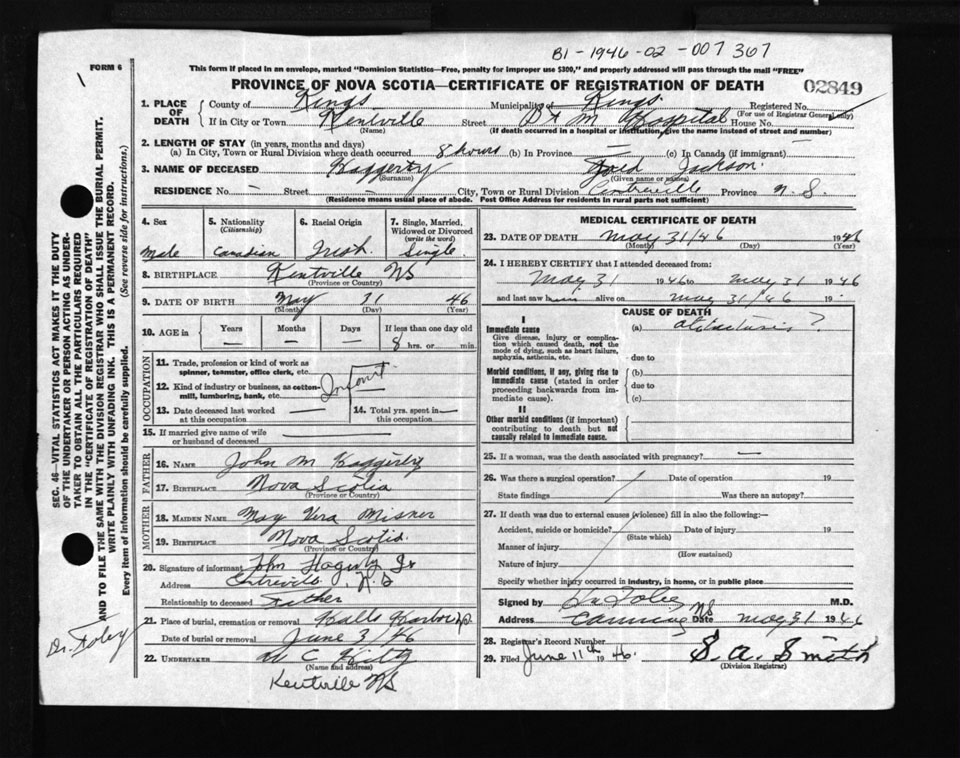 B1-1946-02-007367
FORM 6
This form if placed in an envelope, marked "Dominion Statistics—Free, penalty for improper use $300," and properly addressed will pass through the mail "FREE"
PROVINCE OF NOVA SCOTIA—CERTIFICATE OF REGISTRATION OF DEATH
02849
1. PLACE OF DEATH
County of Kings Municipality of Kings Registered No.
(For use of Registrar General only)
If in City or Town Kentville Street B + M Hospital House No.
(Name) (If death occurred in a hospital or institution, give the name instead of street and number)
2. LENGTH OF STAY (in years, months and days)
(a) In City, Town or Rural Division where death occurred 8 hours (b) In Province — (c) In Canada (if immigrant) —
3. NAME OF DECEASED Haggerty Jackson.
(Surname) (Given name or names)
RESIDENCE No. — Street — City, Town or Rural Division Centreville Province N. S.
(Residence means usual place of abode. Post Office Address for residents in rural parts not sufficient)
4. Sex
Male
5. Nationality
(Citizenship)
Canadian
6. Racial Origin
Irish
7. Single, Married, Widowed or Divorced
(write the word)
Single.
8. BIRTHPLACE Kentville NS
(Province or Country)
9. DATE OF BIRTH May 31 46
(Month) (Day) (Year)
10. AGE in Years Months Days If less than one day old
— — — 8 hrs. or min.
OCCUPATION
11. Trade, profession or kind of work as spinner, teamster, office clerk, etc.
12. Kind of industry or business, as cotton-mill, lumbering, bank, etc. Infant.
13. Date deceased last worked at this occupation —
14. Total yrs. spent in this occupation —
15. If married give name of wife or husband of deceased —
FATHER
16. NAME John M Haggerty
17. BIRTHPLACE Nova Scotia
(Province or Country)
MOTHER
18. MAIDEN NAME May Vera Misner
19. BIRTHPLACE Nova Scotia.
(Province or Country)
20. Signature of informant John Hagerty Jr
Address Centreville, N S
Relationship to deceased Father
21. Place of burial, cremation or removal Halls Harbour NS
Date of burial or removal June 3/46
22. UNDERTAKER
(Name and address)
Kentville NS
MEDICAL CERTIFICATE OF DEATH
23. DATE OF DEATH May 31/46 1946
(Month) (Day) (Year)
24. I HEREBY CERTIFY that I attended deceased from:
May 31 1946 to May 31 1946
and last saw him alive on May 31/46 19
CAUSE OF DEATH
I
Immediate cause (a) atelectasis ?
Give disease, injury or complication which caused death, not the mode of dying, such as heart failure, asphyxia, asthenia, etc.
due to
Morbid conditions, if any, giving rise to immediate cause (stated in order proceeding backwards from immediate cause).
(b)
due to
(c)
II
Other morbid conditions (if important) contributing to death but not causally related to immediate cause.
25. If a woman, was the death associated with pregnancy? —
26. Was there a surgical operation? Date of operation 19
State findings Was there an autopsy?
27. If death was due to external causes (violence) fill in also the following:—
Accident, suicide or homicide? Date of injury 19
(State which)
Manner of injury
(How sustained)
Nature of injury
Specify whether injury occurred in industry, in home, or in public place
Signed by M.D.
Address Canning NS Date May 31 1946
28. Registrar's Record Number
29. Filed June 11th 1946. S. A. Smith
(Division Registrar)
SEC. 46—VITAL STATISTICS ACT MAKES IT THE DUTY
OF THE UNDERTAKER OR PERSON ACTING AS UNDER-
TAKER TO OBTAIN ALL THE PARTICULARS REQUIRED
IN THE "CERTIFICATE OF REGISTRATION OF DEATH"
AND TO FILE THE SAME WITH THE DIVISION REGISTRAR WHO SHALL ISSUE THE BURIAL PERMIT.
WRITE PLAINLY WITH UNFADING INK. THIS IS A PERMANENT RECORD.
Every item of information should be carefully supplied. (See reverse side for instructions.)
Dr. Foley